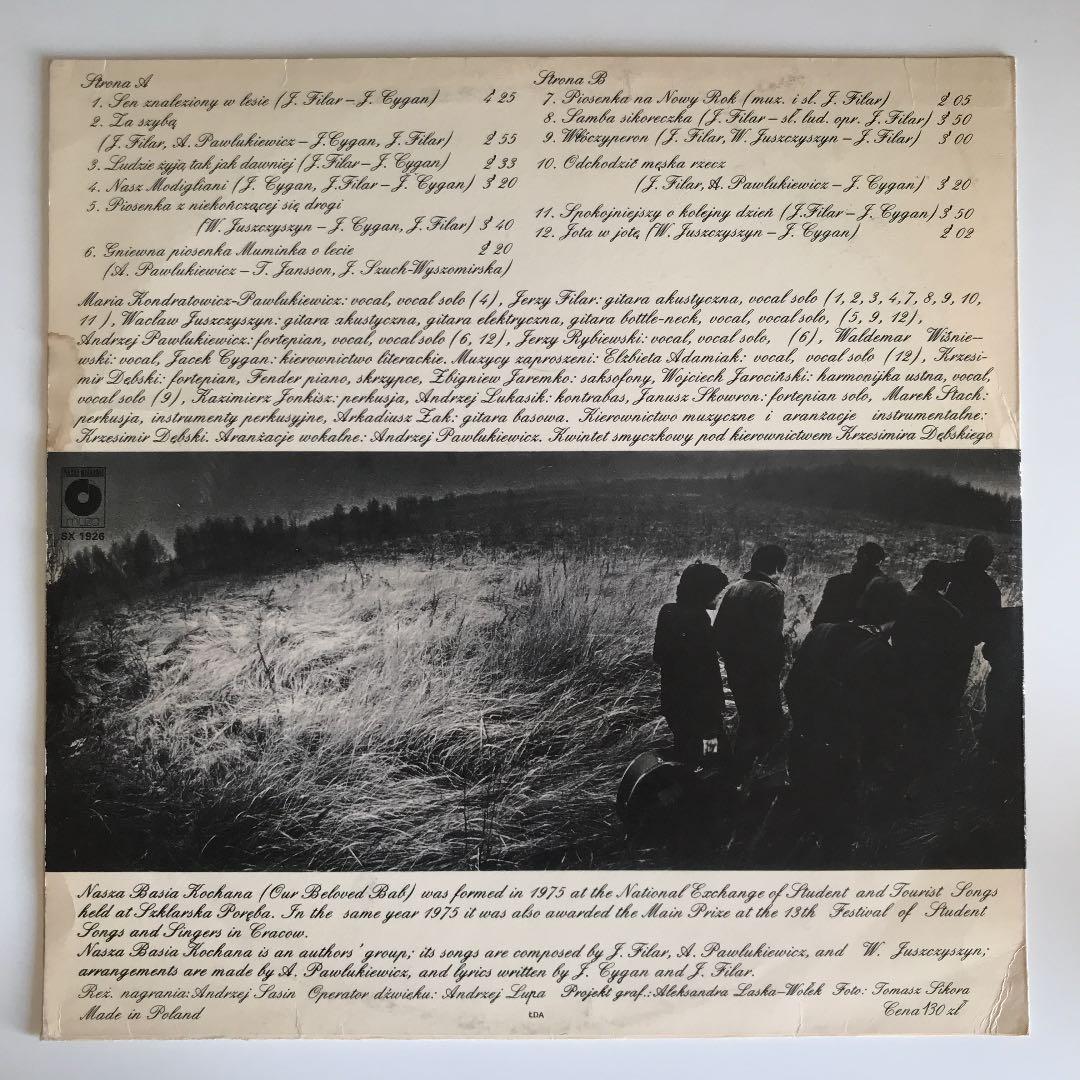 Strona A
1. Sen znaleziony w lesie (J. Filar – J. Cygan) 4'25
2. Za szybą
(J. Filar, A. Pawlukiewicz – J. Cygan, J. Filar) 2'55
3. Ludzie żyją tak jak dawniej (J. Filar – J. Cygan) 2'33
4. Nasz Modigliani (J. Cygan, J. Filar – J. Cygan) 3'20
5. Piosenka z niekończącej się drogi
(W. Juszczyszyn – J. Cygan, J. Filar) 3'40
6. Gniewna piosenka Muminka o lecie 2'20
(A. Pawlukiewicz – T. Jansson, J. Szuch-Wyszomirska)
Strona B
7. Piosenka na Nowy Rok (muz. i sł. J. Filar) 2'05
8. Samba sikoreczka (J. Filar – sł. lud. opr. J. Filar) 3'50
9. Włóczyperon (J. Filar, W. Juszczyszyn – J. Filar) 3'00
10. Odchodzić męska rzecz
(J. Filar, A. Pawlukiewicz – J. Cygan) 3'20
11. Spokojniejszy o kolejny dzień (J. Filar – J. Cygan) 3'50
12. Jota w jotę (W. Juszczyszyn – J. Cygan) 2'02
Maria Kondratowicz-Pawlukiewicz: vocal, vocal solo (4), Jerzy Filar: gitara akustyczna, vocal solo (1, 2, 3, 4, 7, 8, 9, 10,
11), Wacław Juszczyszyn: gitara akustyczna, gitara elektryczna, gitara bottle-neck, vocal, vocal solo, (5, 9, 12),
Andrzej Pawlukiewicz: fortepian, vocal, vocal solo (6, 12), Jerzy Rybiewski: vocal, vocal solo, (6), Waldemar Wiśnie–
wski: vocal, Jacek Cygan: kierownictwo literackie. Muzycy zaproszeni: Elżbieta Adamiak: vocal, vocal solo (12), Krzesi-
mir Dębski: fortepian, Fender piano, skrzypce, Zbigniew Jaremko: saksofony, Wojciech Jarociński: harmonijka ustna, vocal,
vocal solo (9), Kazimierz Jonkisz: perkusja, Andrzej Łukasik: kontrabas, Janusz Skowron: fortepian solo, Marek Stach:
perkusja, instrumenty perkusyjne, Arkadiusz Żak: gitara basowa. Kierownictwo muzyczne i aranżacje instrumentalne:
Krzesimir Dębski. Aranżacje wokalne: Andrzej Pawlukiewicz. Kwintet smyczkowy pod kierownictwem Krzesimira Dębskiego
POLSKIE NAGRANIA
muza
SX 1926
Nasza Basia Kochana (Our Beloved Bab) was formed in 1975 at the National Exchange of Student and Tourist Songs
held at Szklarska Poręba. In the same year 1975 it was also awarded the Main Prize at the 13th Festival of Student
Songs and Singers in Cracow.
Nasza Basia Kochana is an authors' group; its songs are composed by J. Filar, A. Pawlukiewicz, and W. Juszczyszyn;
arrangements are made by A. Pawlukiewicz, and lyrics written by J. Cygan and J. Filar.
Reż. nagrania: Andrzej Sasin Operator dźwięku: Andrzej Lupa Projekt graf.: Aleksandra Laska-Wołek Foto: Tomasz Sikora
Made in Poland ŁDA Cena 130 zł